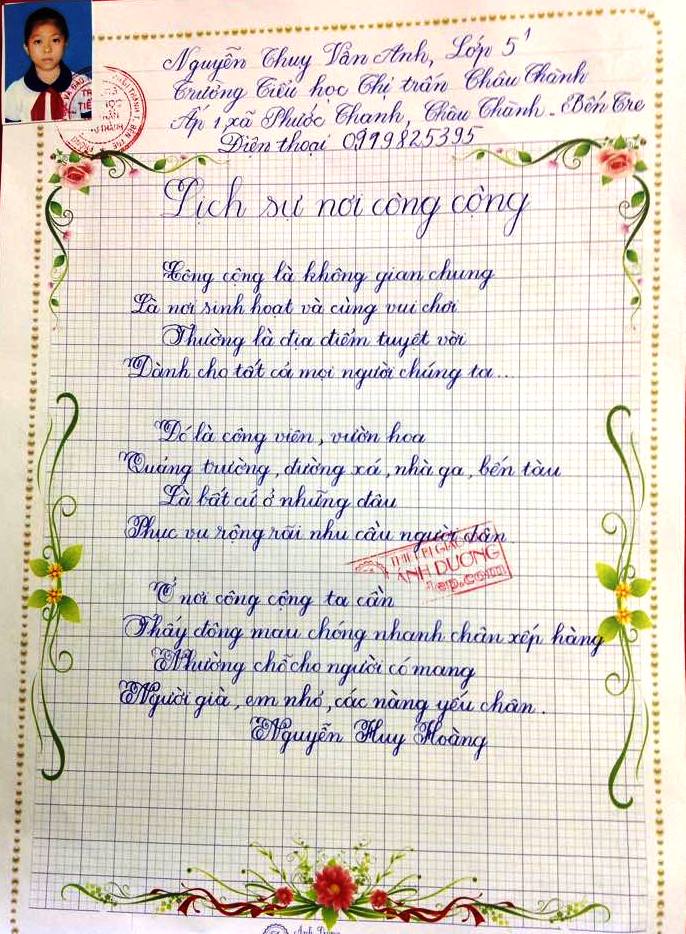 Nguyễn Thuy Vân Anh, Lớp 5¹
Trường Tiểu học Thị trấn Châu Thành
Ấp 1 xã Phước Thanh, Châu Thành - Bến Tre
Điện thoại 0919825395
Lịch sự nơi công cộng
Công cộng là không gian chung
Là nơi sinh hoạt và cùng vui chơi
Thường là địa điểm tuyệt vời
Dành cho tất cả mọi người chúng ta...
Đó là công viên, vườn hoa
Quảng trường, đường xá, nhà ga, bến tàu
Là bất cứ ở những đâu
Phục vụ rộng rãi nhu cầu người dân
THIẾT BỊ GIÁO
ANH DUONG
Ở nơi công cộng ta cần
Thấy đông mau chóng nhanh chân xếp hàng
Nhường chỗ cho người có mang
Người già, em nhỏ, các nàng yếu chân.
Nguyễn Huy Hoàng